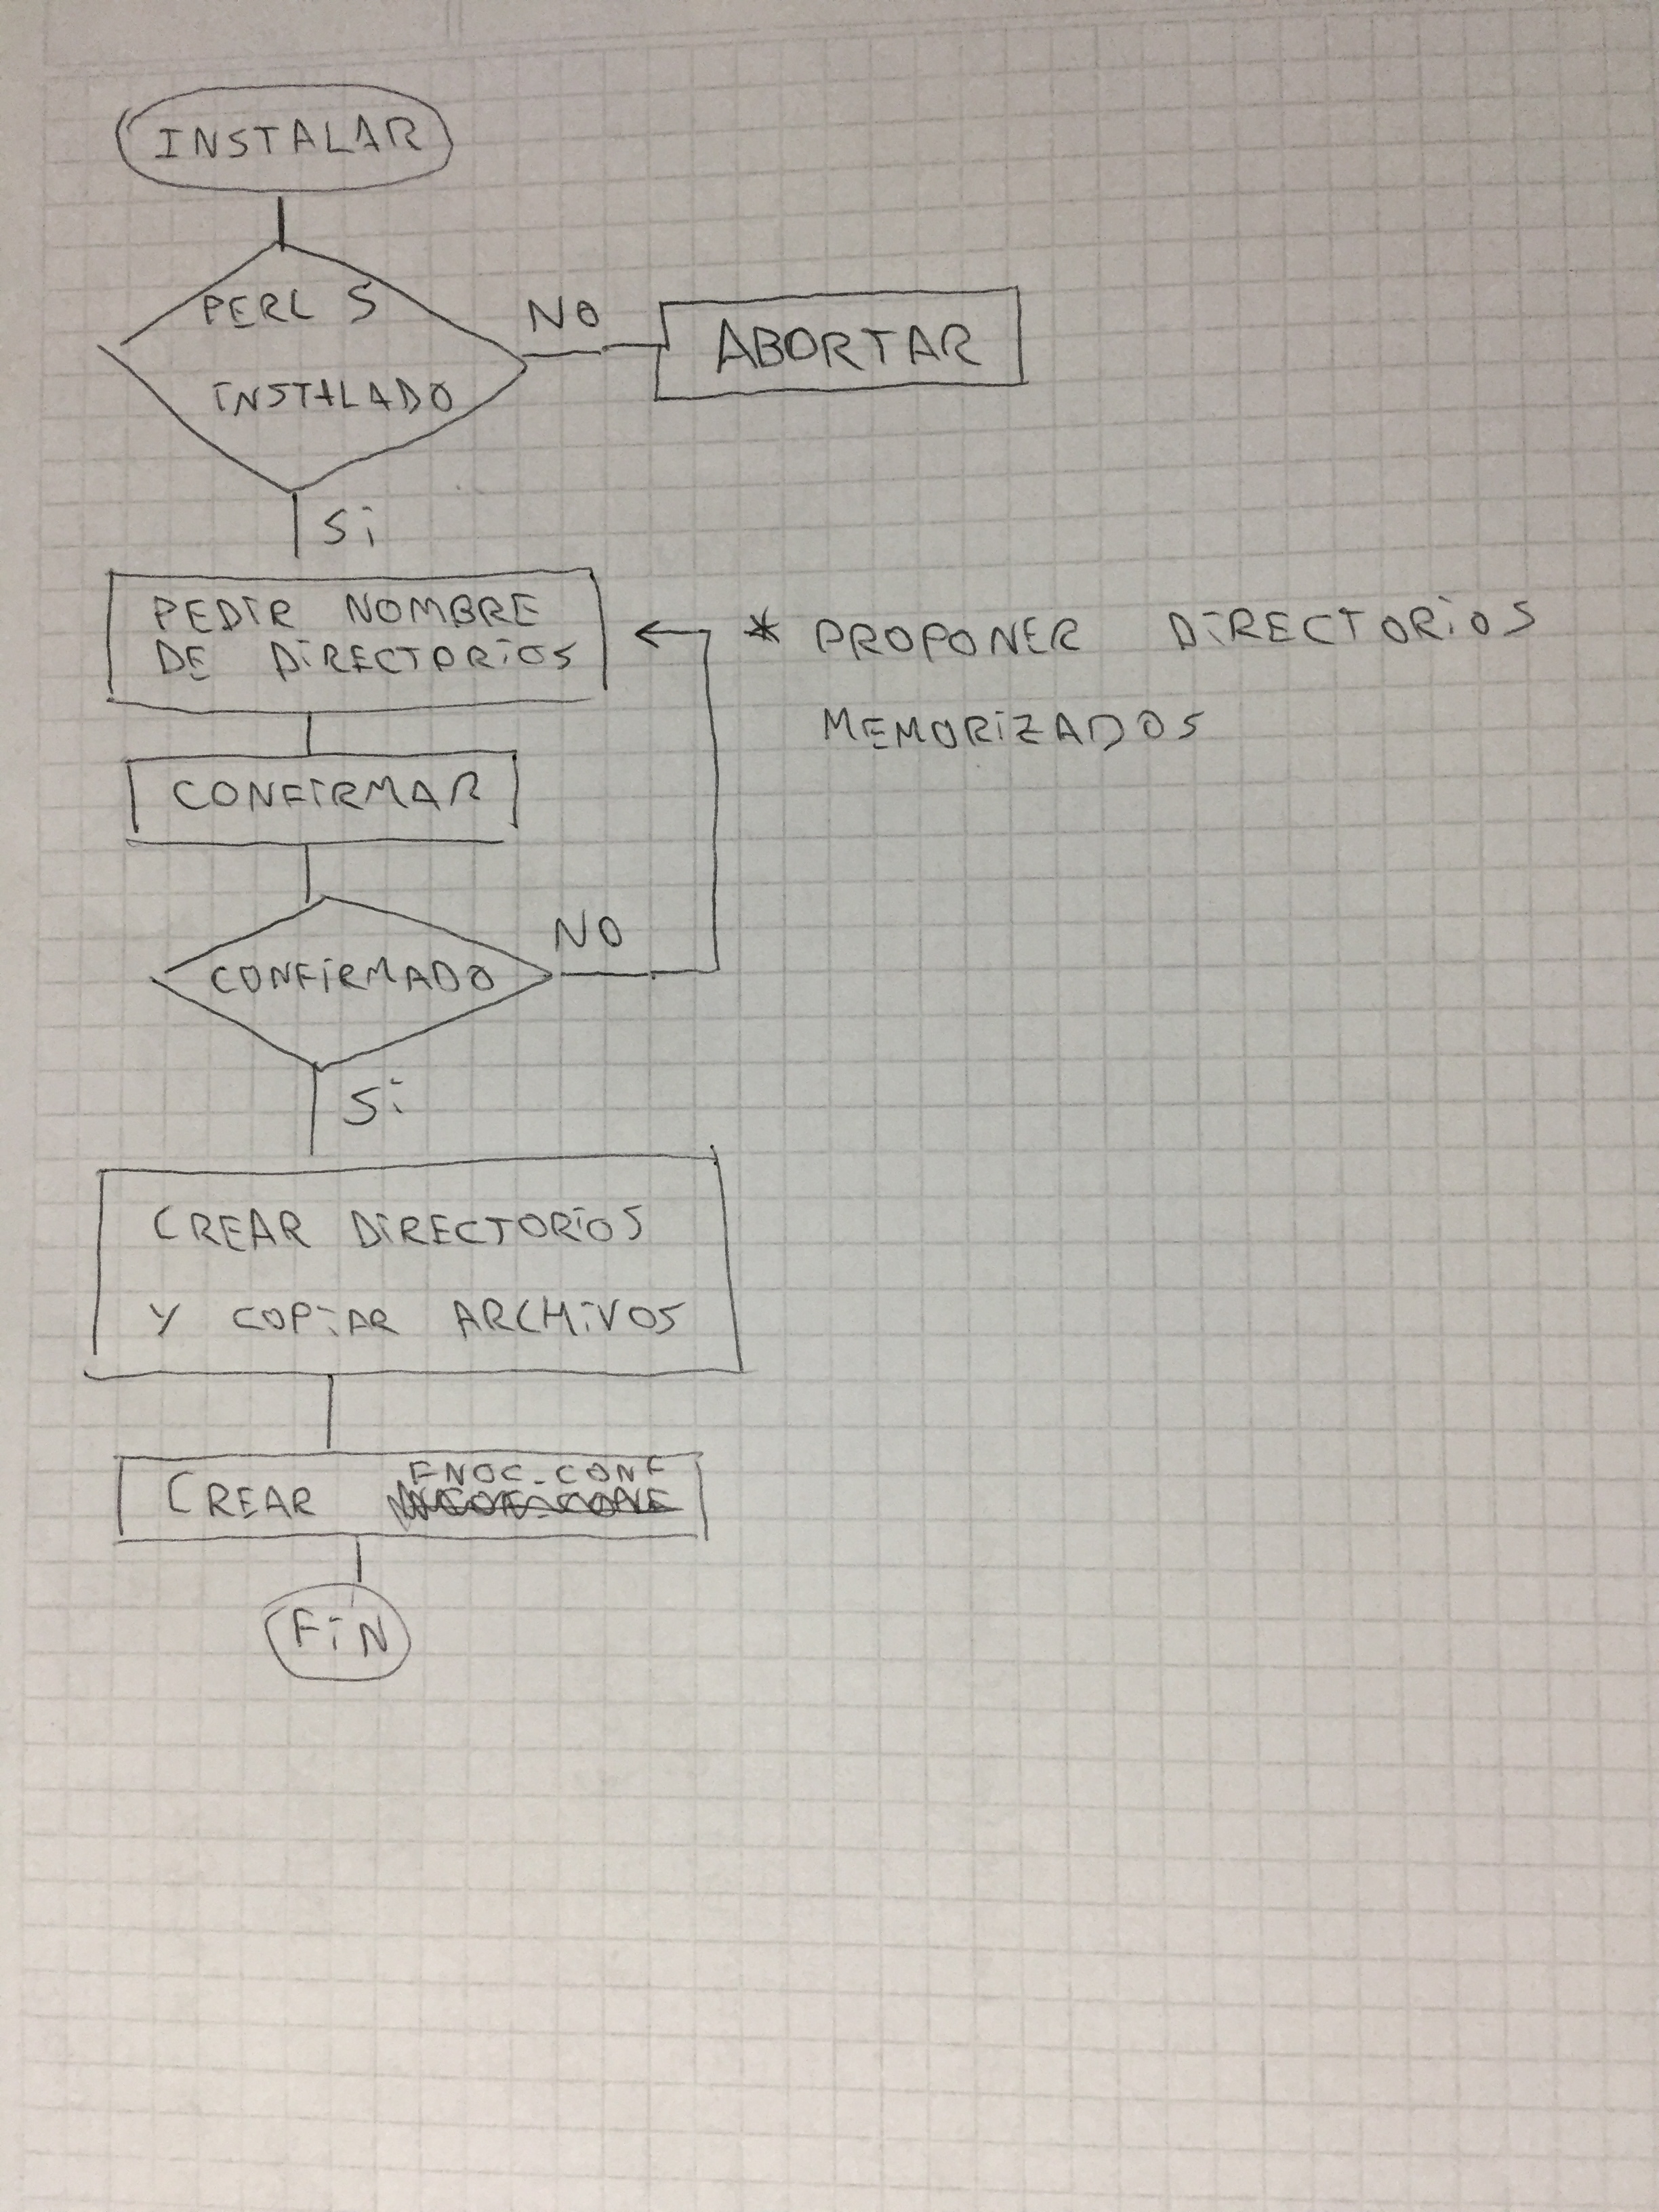 INSTALAR
PERL 5
INSTALADO
NO
ABORTAR
Si
PEDIR NOMBRE
DE DiRECTORiOS
* PROPONER DiRECTORiOS
MEMORiZADOS
CONFIRMAR
CONFiRMADO
NO
Si
CREAR DiRECTORiOS
Y COPiAR ARCHiVOS
FNOC.CONF
CREAR
FiN